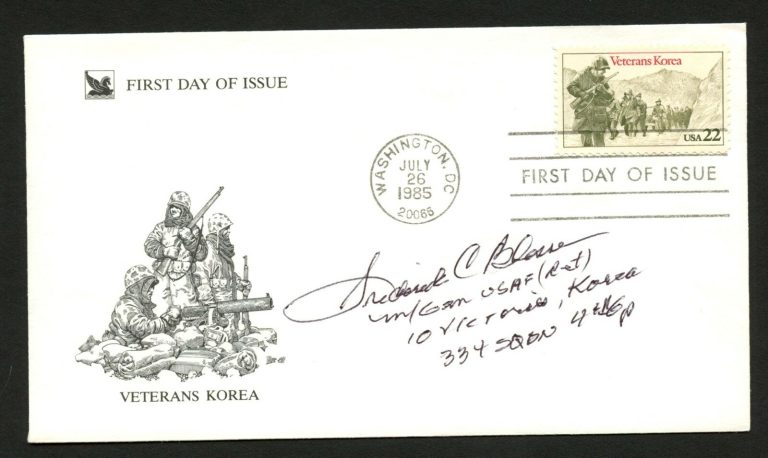 FIRST DAY OF ISSUE
Veterans Korea
USA 22
WASHINGTON, DC
JULY
26
1985
20066
FIRST DAY OF ISSUE
Frederick C Blesse
M/Gen USAF (Ret)
10 Victories, Korea
334 SQDN 4th Gp
VETERANS KOREA